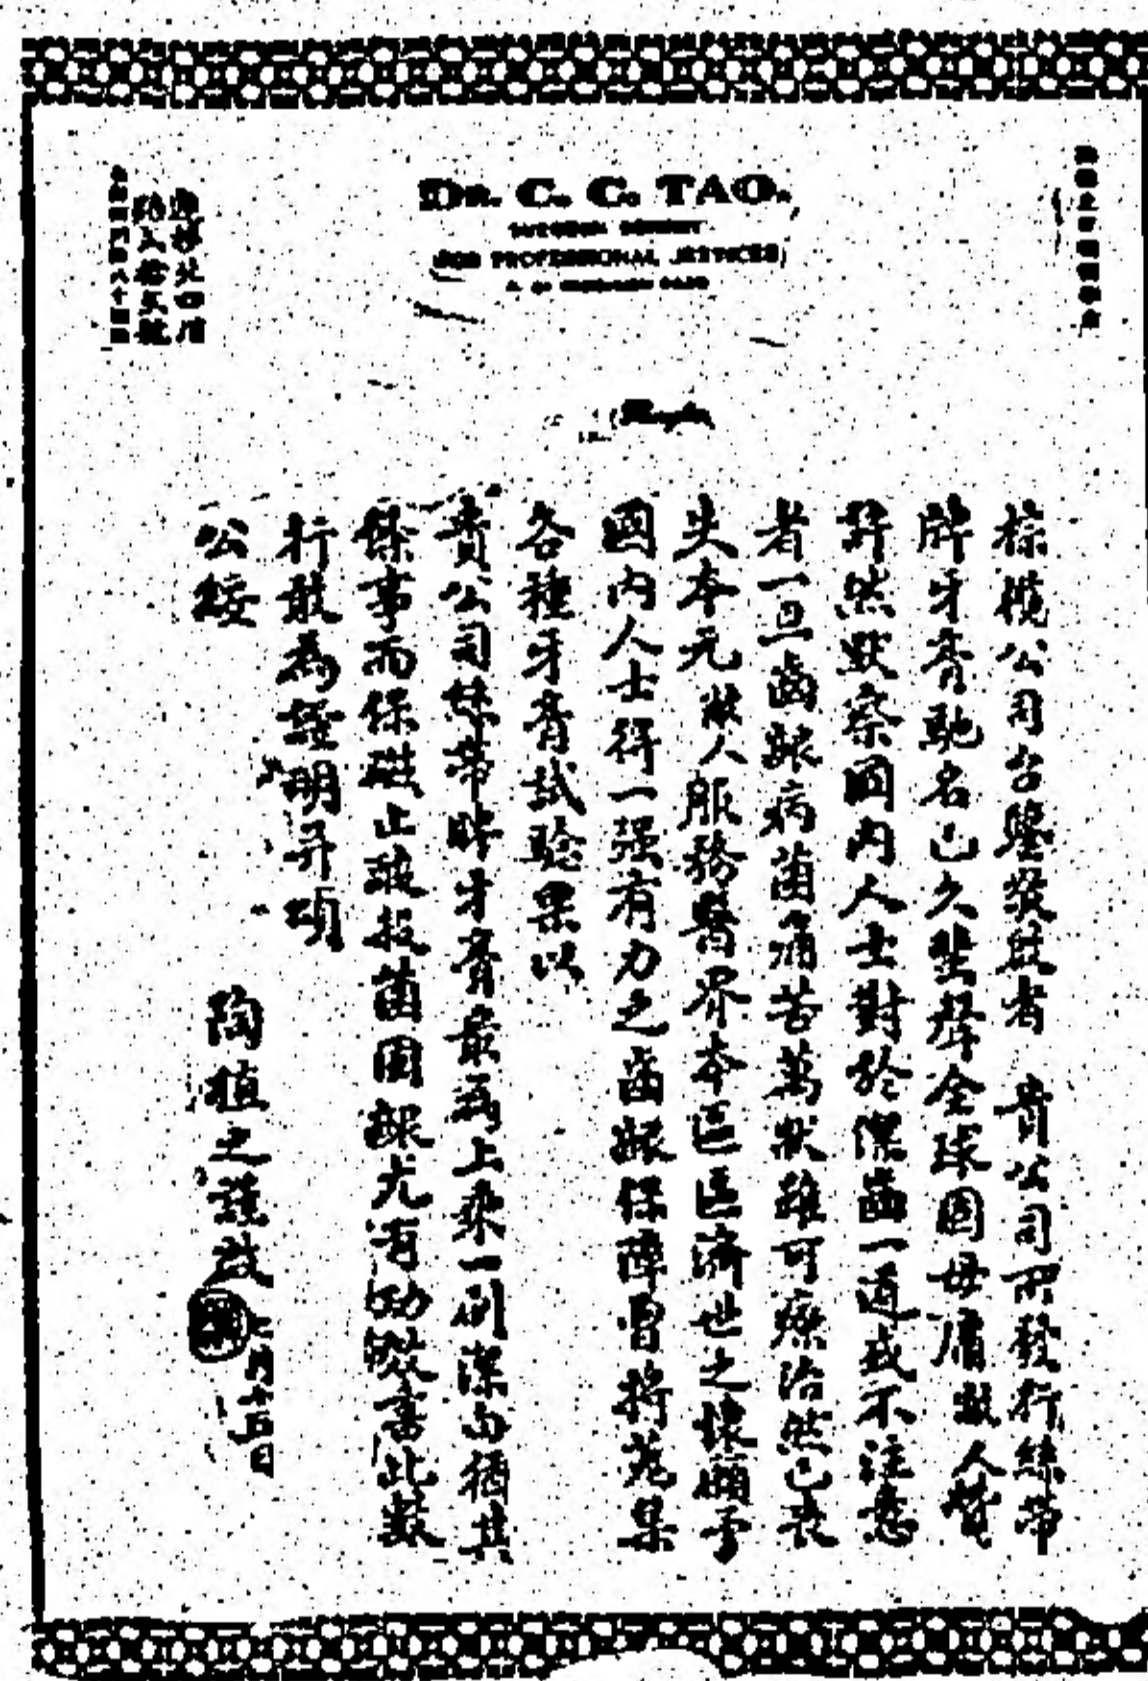 DR. C. C. TAO.
SURGEON DENTIST
FOR PROFESSIONAL SERVICES
棕欖公司台鑒敬啟者 貴公司所發行絲帶
牌牙膏馳名已久蜚聲全球固毋庸敝人贊
許然默察國內人士對於潔齒一道或不注意
者一旦齒齦病菌痛苦萬狀雖可療治然已喪
失本元敝人服務醫界本區區濟世之懷願予
國內人士得一强有力之齒齦保障曾將蒐集
各種牙膏試驗果以
貴公司絲帶牌牙膏最為上乘一刷潔白猶其
餘事而保 止酸殺菌固齦尤有功效書此數
行敢為證明并頌
公綏
陶植之謹啟
七月十五日